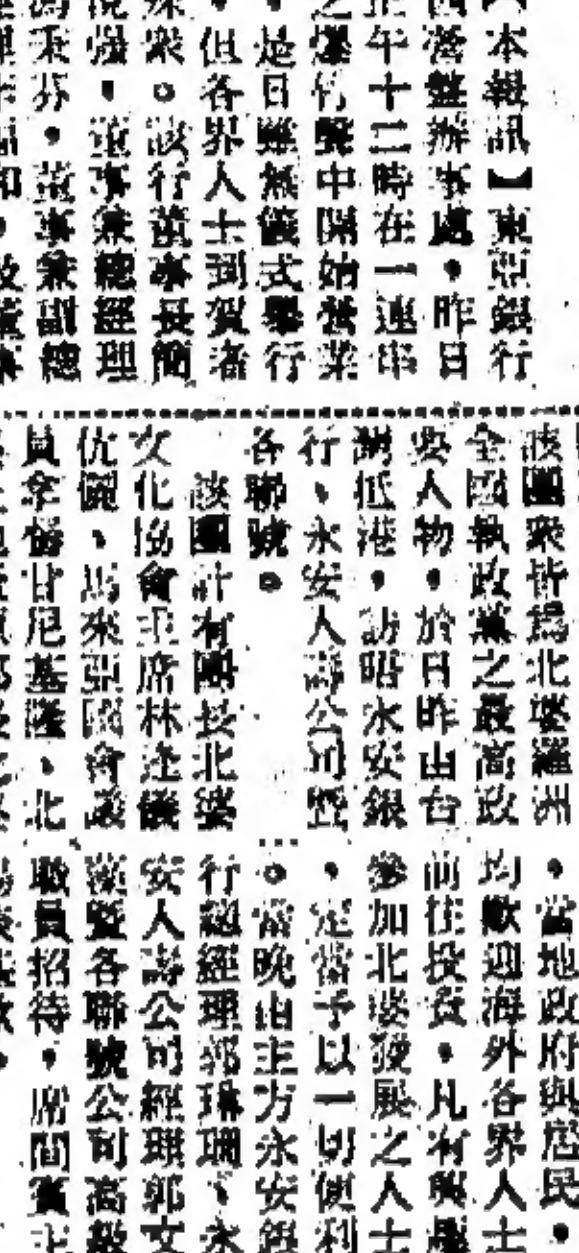 本報訊】東亞銀行
營整辦事處，昨日
正午十二時在一連串
之爆竹聲中開始營業
，是日雖無儀式舉行
，但各界人士到賀者
殊衆。該行董事長簡
强，董事兼總經理
馮秉芬，董事兼副總
該團衆皆爲北婆羅洲
全國執政黨之最高政
要人物，於日昨由台
灣抵港，訪晤永安銀
行、永安人壽公司暨
各聯號。
該團計有團長北婆
文化協會主席林逢儀
伉儷、馬來亞國會議
員拿督甘尼基隆、北
，當地政府與居民，
均歡迎海外各界人士
前往投資，凡有興趣
參加北婆發展之人士
，定當予以一切便利
。當晚由主方永安銀
行總經理郭琳珊、永
安人壽公司經理郭文
漢暨各聯號公司高級
職員招待，席間賓主